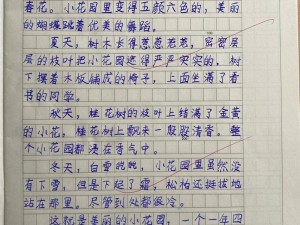 春花。小花园里变得五颜六色的，美丽
的蝴蝶跳着优美的舞蹈。
夏天，树木长得葱葱茏茏，密密层
层的枝叶把小花园遮得严严实实的，树
下摆着木板铺成的椅子，上面坐满了看
书的同学。
秋天，桂花树的枝叶上结满了金黄
的小花，桂花树上飘来一股股清香。整
个小花园都浸在香气中。
冬天，白雪皑皑，小花园里虽然没
有下雪，但是下起了霜，松柏还挺拔地
站在那里。尽管到处都寒冷。
这就是美丽的小花园，一个一年四